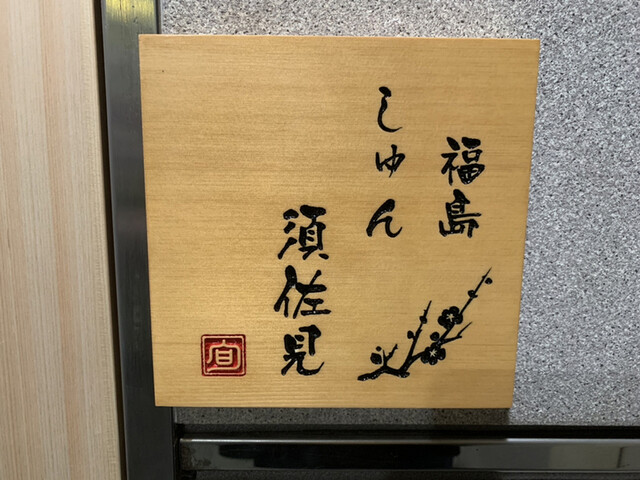 福島
しゅん
須佐見